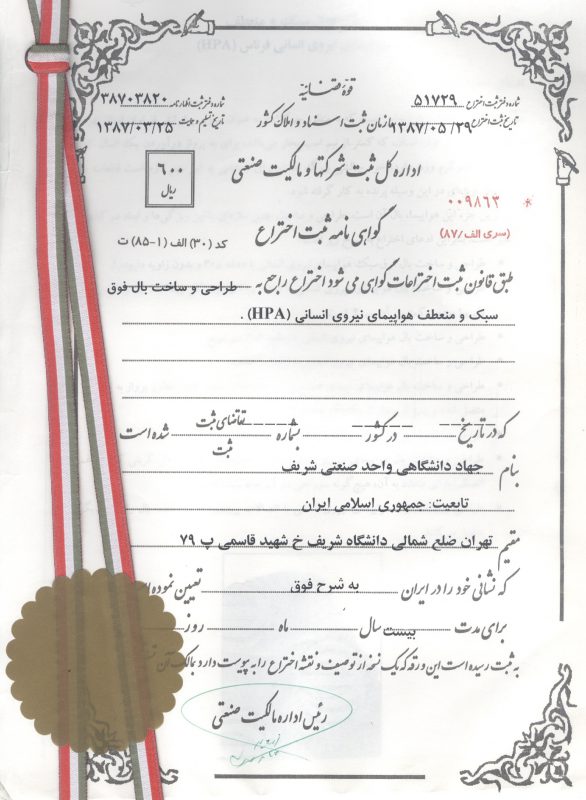 قوه قضائیه
شماره دفتر ثبت اختراع ۵۱۷۲۹
شماره دفتر ثبت اظهارنامه ۳۸۷۰۳۸۲۰
سازمان ثبت اسناد و املاک کشور
تاریخ ثبت اختراع ۱۳۸۷/۰۵/۲۹
تاریخ تسلیم و حمایت ۱۳۸۷/۰۳/۲۵
اداره کل ثبت شرکتها و مالکیت صنعتی
۶۰۰
ریال
۰۰۹۸۶۳
(سری الف/۸۷)
گواهی نامه ثبت اختراع
کد (۳۰) الف (۱-۸۵) ت
طبق قانون ثبت اختراعات گواهی می شود اختراع راجع به طراحی و ساخت بال فوق
سبک و منعطف هواپیمای نیروی انسانی (HPA) .
که در تاریخ در کشور بشماره تقاضای ثبت شده است
ثبت
بنام جهاد دانشگاهی واحد صنعتی شریف
تابعیت: جمهوری اسلامی ایران
مقیم تهران ضلع شمالی دانشگاه شریف خ شهید قاسمی پ ۷۹
که نشانی خود را در ایران به شرح فوق تعیین نموده
برای مدت بیست سال ماه روز
به ثبت رسیده است این ورقه که یک نسخه از توصیف و نقشه اختراع را به پیوست دارد بمالک آن
رئیس اداره مالکیت صنعتی